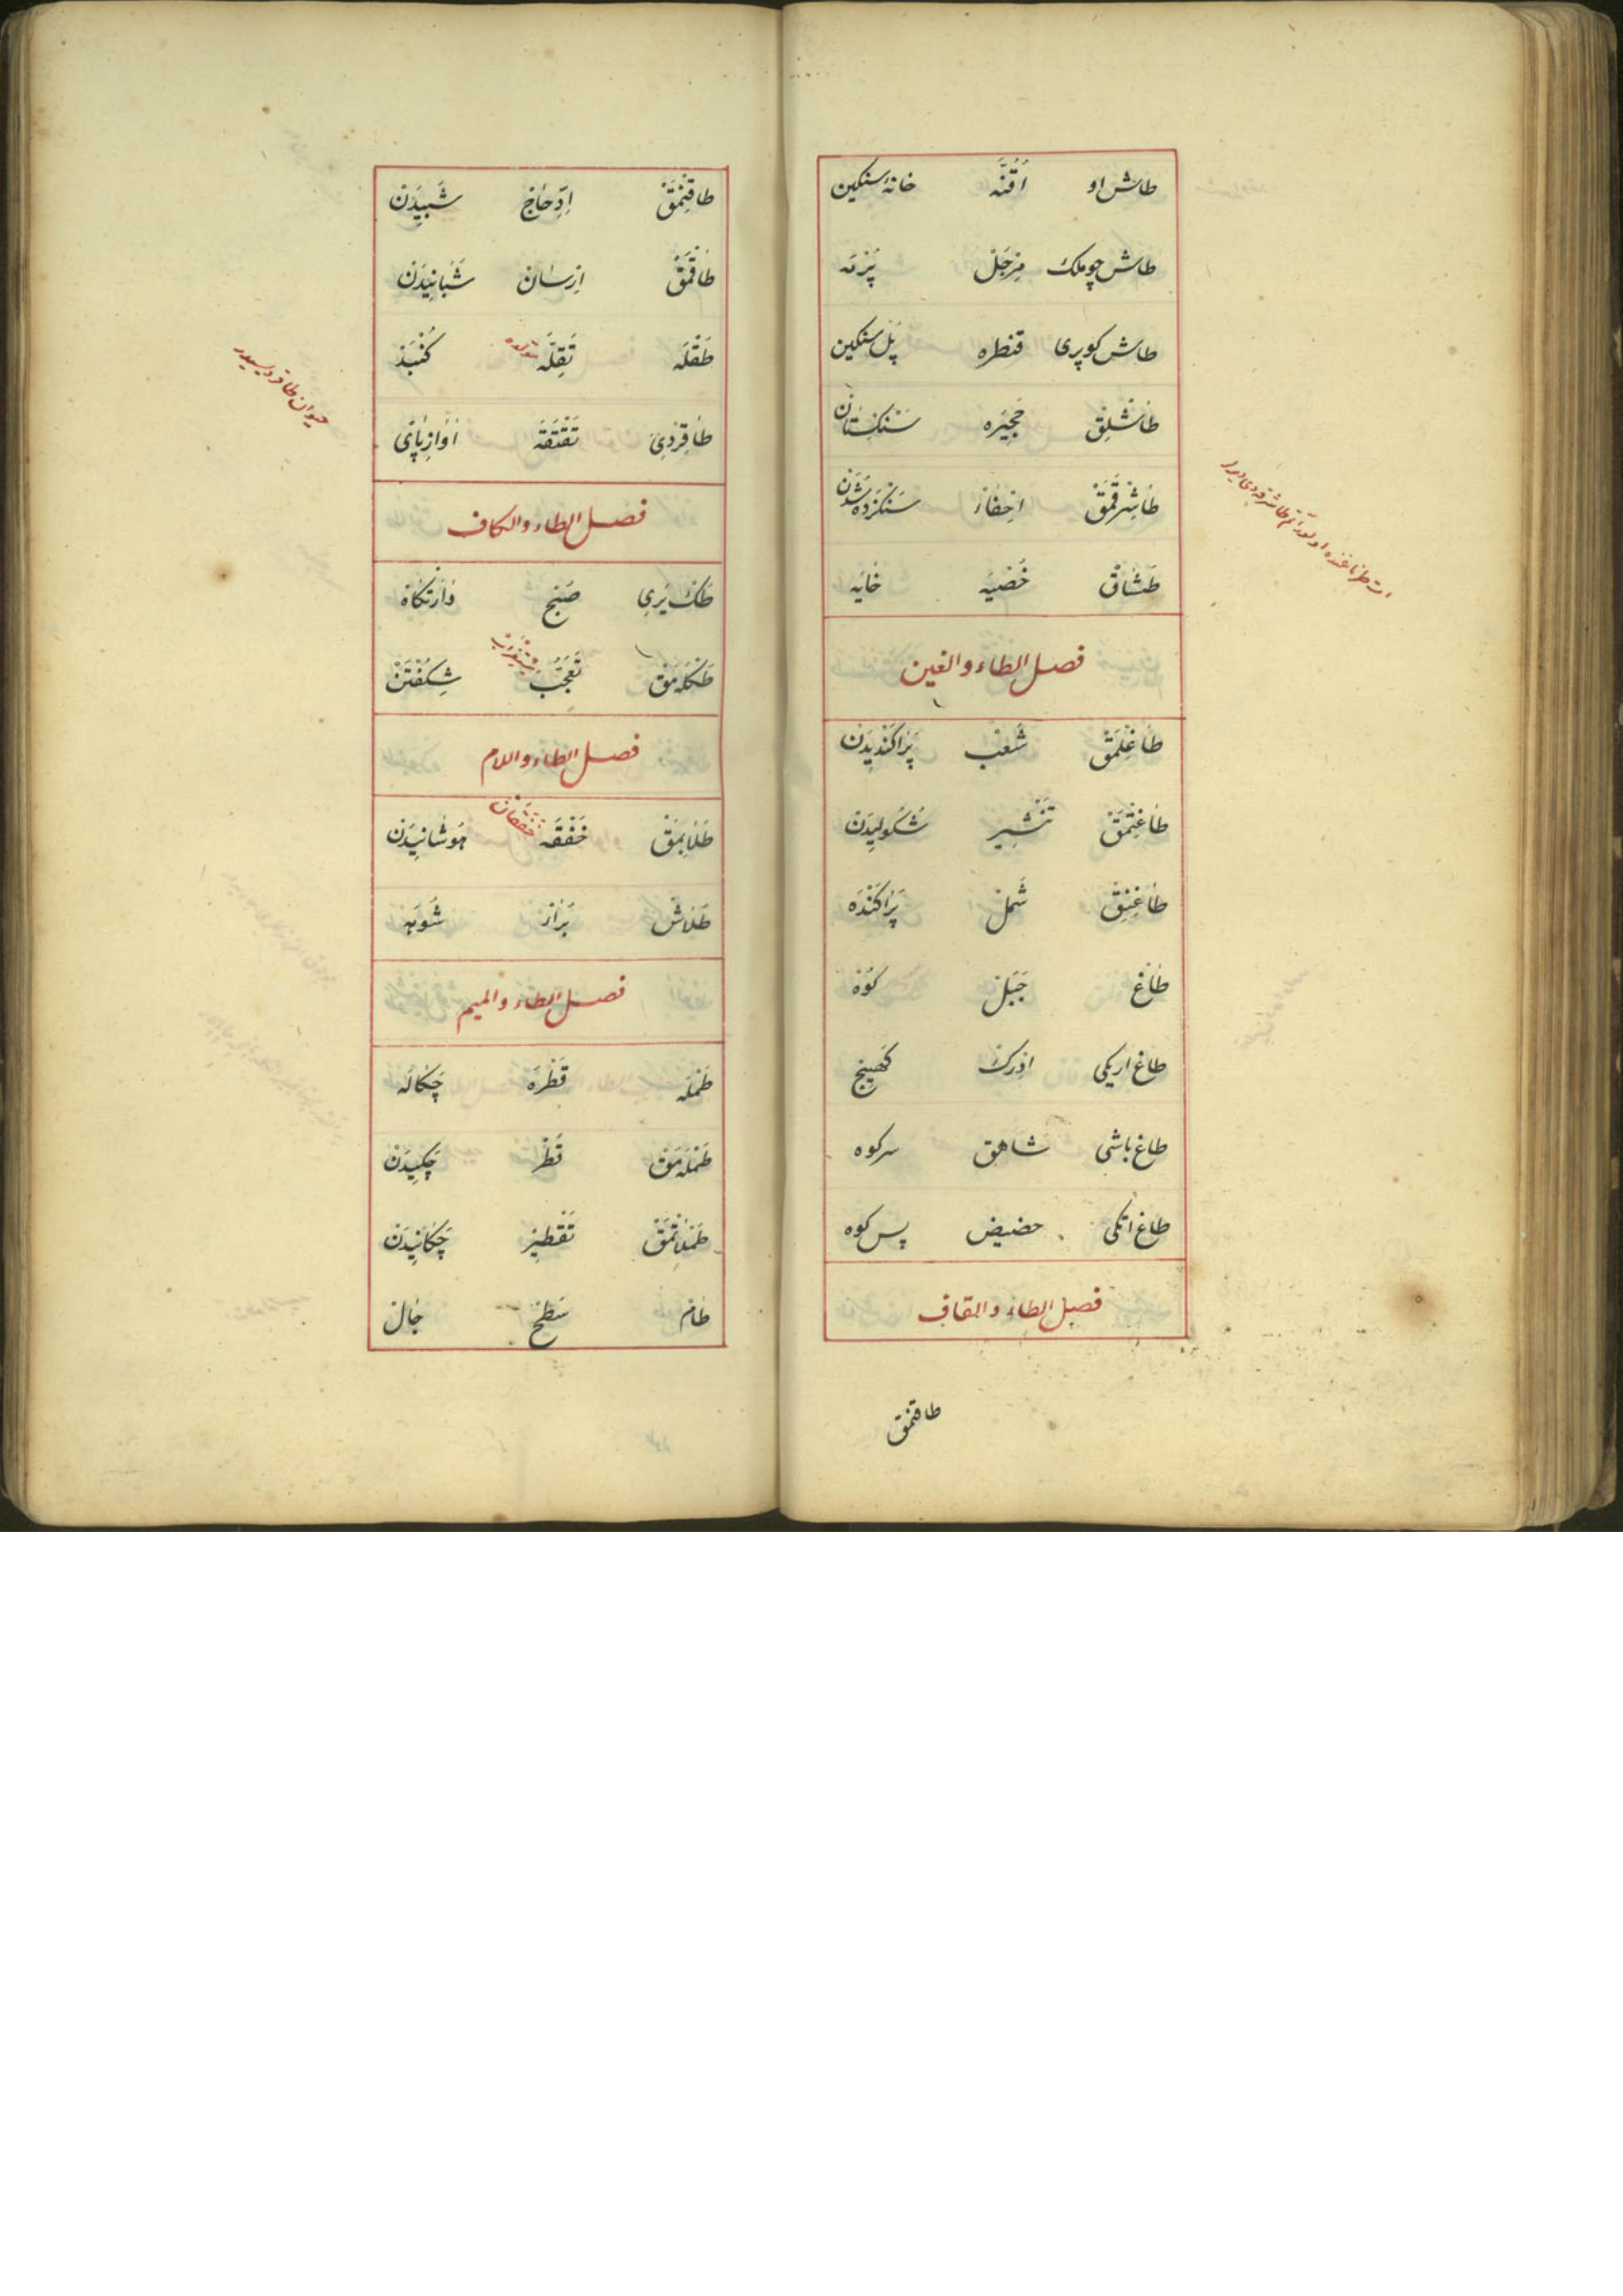 طاش او اُقُنَّه خانۀ سنکین
طاش چوملک مِرجَلْ پَزنه
طاش کوپری قنطره پُل سنکین
طَاشْلِقْ حَجِیَره سَنْکِسْتَانْ
طَاشِرْقَمَقْ اِحْفَاءْ سَنْکَزَدَه شُدَنْ
طَشَاقْ خُصْیَه خَایَه
فصل الطاء والغین
طَاغِلْمَقْ شَعْب پَرَاکَنْدِیدَنْ
طَاغِتْمَقْ تَنْشِیر شُکُولِیدَنْ
طَاغِنِقْ شَمَلْ پَرَاکَنْدَه
طَاغْ جَبَلْ کُوْه
طاغ اریکی ادرک کَهِینج
طاغ باشی شاهق سرکوه
طاغ اتکی حضیض پس کوه
فصل الطاء والقاف
طاقنمق
طَاقِنْمَقْ اِدِّحَاجْ شَبِیدَنْ
طَاقْمَقْ اِرسَانْ شَبَانِیدَنْ
طَقْلَه تَقِلَّه مولده کُنْبَدْ
طَاقِرْدِیْ تَقْتَقَه اٰوَازِ پَایْ
حیوان طاقردیسیدر
فصل الطاء والکاف
طَکْ یَرِی صَبَح
طَکْلَمَقْ تَعَجُّبْ شِکُفْتَنْ
فصل الطاء واللام
طَلَابِمَقْ خَفْقَه خَفَقَانْ هُوشَانِیدَنْ
طَلَاشْ بُرَازْ شُوَبَه
فصل الطاء والمیم
طَمْلَه قَطْرَه چَکَالَه
طَمْلَمَقْ قَطْرْ چَکِیدَنْ
طَمْلَاتْمَقْ تَقْطِیرْ چَکَانِیدَنْ
طَامْ سَطْحْ